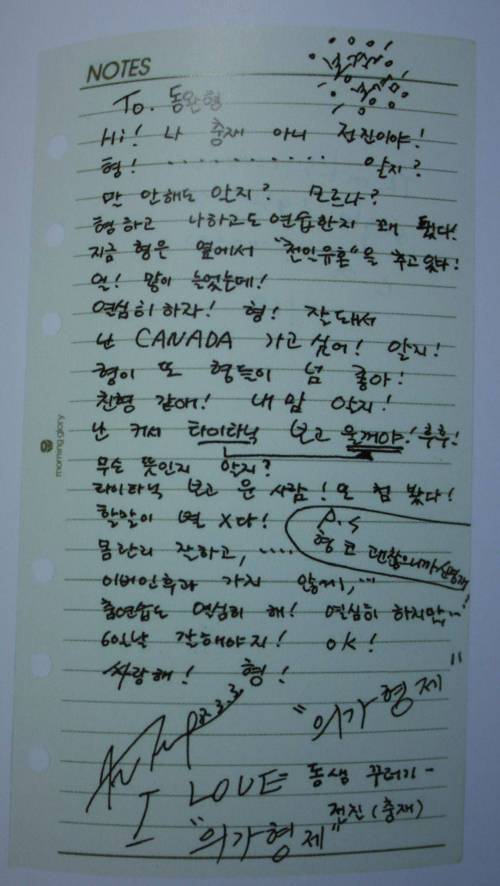 NOTES
To. 동완형
Hi! 나 충재 아니 전진이야!
형! ............ 알지?
말 안해도 알지? 모르나?
형하고 나하고도 연습한지 꽤 됐다!
지금 형은 옆에서 "천인유혼"을 추고있다!
오! 많이 늘었는데!
연심히하자! 형! 잘돼서
난 CANADA 가고싶어! 알지!
형이 또 형들이 넘 좋아!
친형 같애! 내 맘 알지!
난 커서 타이타닉 보고 울꺼야! 후후!
무슨 뜻인지 알지?
타이타닉 보고 운 사람! 또 첨 봤다!
할말이 별 X다!
P.S
형 코 괜찮으니까
몸관리 잘하고, ....
가지 않게, ...
춤연습도 열심히 해! 열심히 하지만, ..!
6일날 잘해야지! OK!
사랑해! 형!
"의가형제"
I LOVE 동생 꾸러기-
전진(충재)
"의가형제"
morning glory